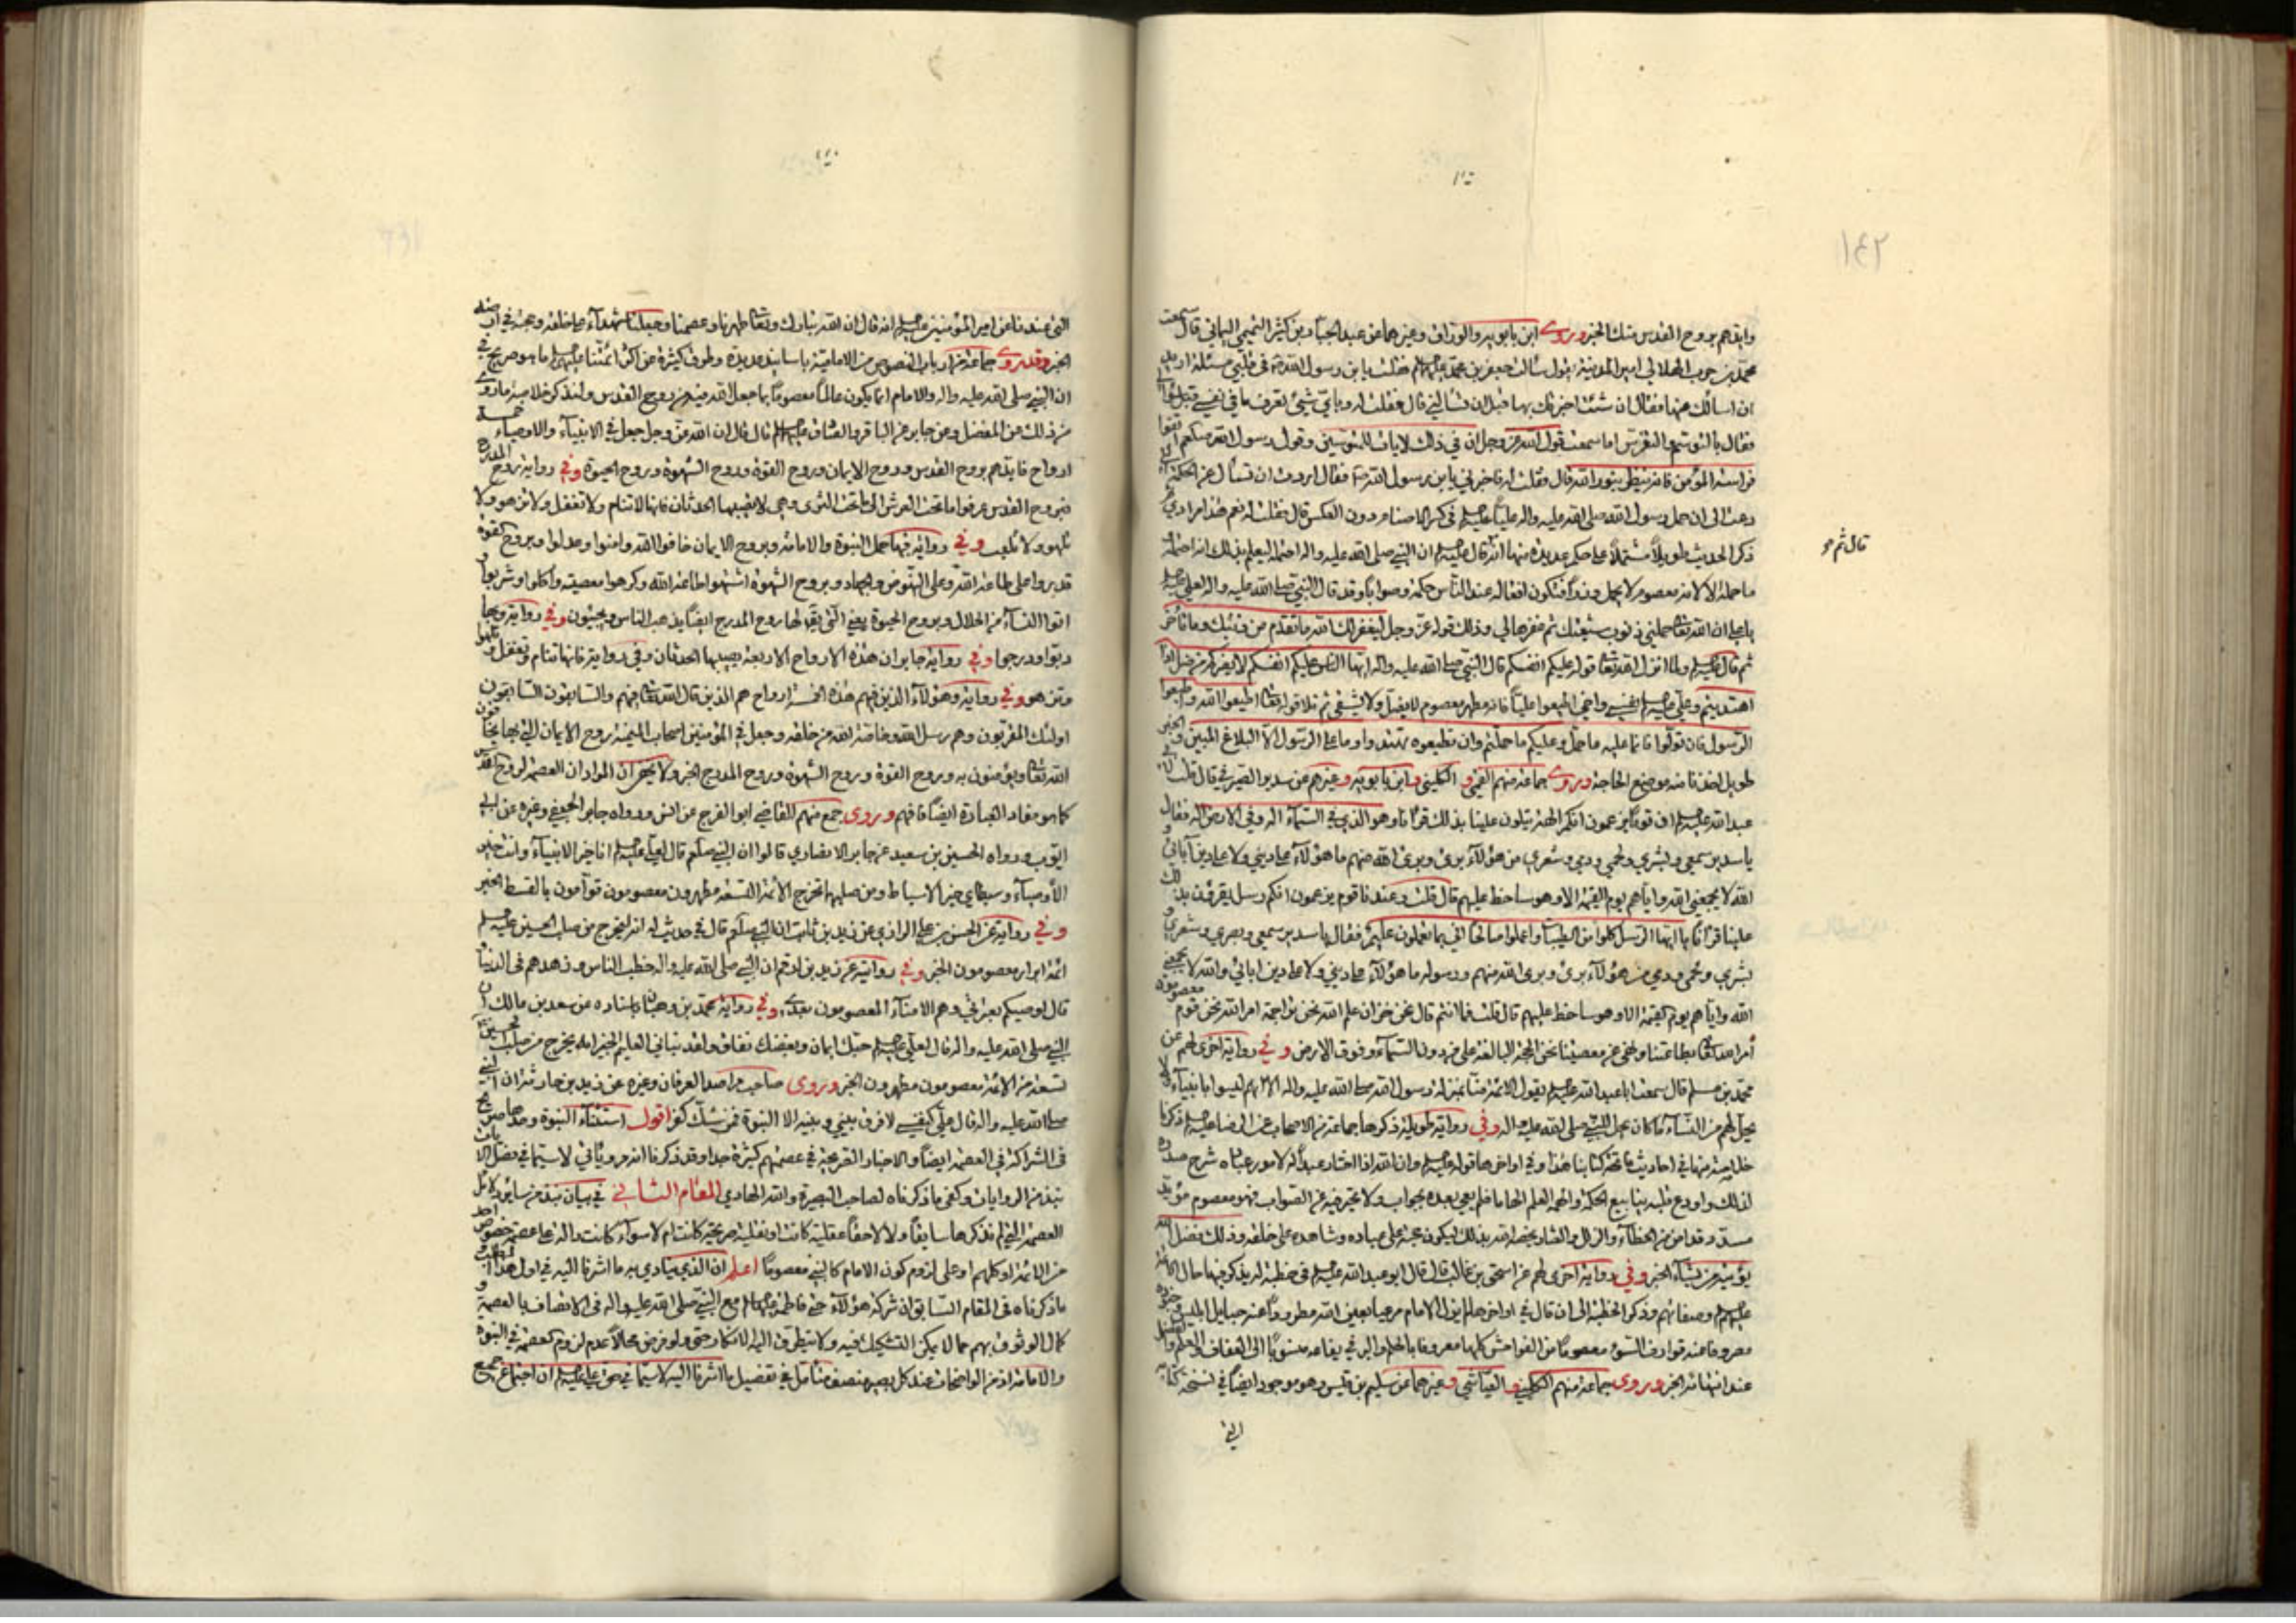 ١٤٢
وايدهم بروح القدس منك الخبر وروى ابن بابويه والوراق وغيرهما عن عبد الجبار بن كثير التميمي اليماني قال سمعت
محمد بن حرب الهلالي امير المدينة يقول سالت جعفر بن محمد عليهما السلم فقلت يا بن رسول الله في قلبي مسئلة اريد
ان اسالك عنها فقال ان شئت اخبرتك بها قبل ان تسالني قال فقلت له وباي شيء تعرف ما في نفسي قبل سؤالي
فقال بالتوسم والتفرس اما سمعت قول الله عز وجل ان في ذلك لايات للمتوسمين وقول رسول الله صلعم اتقوا
فراسة المؤمن فانه ينظر بنور الله قال وقلت له فاخبرني يا بن رسول الله فقال اردت ان تسال عن الحكمة التي
دعت الى ان حمل رسول الله صلى الله عليه واله عليا عليه السلم في كسر الاصنام دون العكس قال فقلت له نعم هذا مرادي
قال ثم هو
ذكر الحديث طويلا مشتملا على حكم عديدة منها انه قال عليه السلم ان النبي صلى الله عليه واله احتمله ليعلم بذلك انه احتمله
ما حمله الا لانه معصوم لا يحمل وزرا فتكون افعاله عند الناس حكمة وصوابا وقد قال النبي صلى الله عليه واله لعلي عليه السلم
يا علي ان الله تعالى حملني ذنوب شيعتك ثم غفرها لي وذلك قوله عز وجل ليغفر لك الله ما تقدم من ذنبك وما تاخر
ثم قال عليه السلم ولما انزل الله تعالى قوله عليكم انفسكم قال النبي صلى الله عليه واله ايها الناس عليكم انفسكم لا يضركم من ضل اذا
اهتديتم وعلي عليه السلم نفسي واخي اطيعوا عليا فانه مطهر معصوم لا يضل ولا يشقى ثم تلا قوله تعالى اطيعوا الله واطيعوا
الرسول فان تولوا فانما عليه ما حمل وعليكم ما حملتم وان تطيعوه تهتدوا وما على الرسول الا البلاغ المبين والخبر
طويل اخذنا منه موضع الحاجة وروى جماعة منهم القمي والكليني وابن بابويه وغيرهم عن سدير الصيرفي قال قلت لابي
عبد الله عليه السلم ان قوما يزعمون انكم الهة يتلون علينا بذلك قرانا وهو الذي في السماء اله وفي الارض اله فقال
يا سدير سمعي وبشري ولحمي ودمي وشعري من هؤلاء بريء وبرئ الله منهم ما هؤلاء على ديني ولا على دين ابائي و
الله لا يجمعني الله واياهم يوم القيمة الا وهو ساخط عليهم قال قلت وعندنا قوم يزعمون انكم رسل يقرؤن بذلك
علينا قرانا يا ايها الرسل كلوا من الطيبات واعملوا صالحا اني بما تعملون عليم فقال يا سدير سمعي وبصري وشعري و
بشري ولحمي ودمي من هؤلاء بريء وبرئ الله منهم ورسوله ما هؤلاء على ديني ولا على دين ابائي والله لا يجمعني
الله واياهم يوم القيمة الا وهو ساخط عليهم قال قلت فما انتم قال نحن خزان علم الله نحن تراجمة امر الله نحن قوم معصومون
امر الله تعالى بطاعتنا ونهى عن معصيتنا نحن الحجة البالغة على من دون السماء وفوق الارض وفي رواية اخرى لهم عن
محمد بن مسلم قال سمعت ابا عبد الله عليه السلم يقول الائمة منا بمنزلة رسول الله صلى الله عليه واله الا انهم ليسوا بانبياء ولا
يحل لهم من النساء ما كان يحل للنبي صلى الله عليه واله وفي رواية طويلة ذكرها جماعة من الاصحاب عن الرضا عليه السلم ذكرنا
خلاصة منها في احاديث فاتحة كتابنا هذا وفي اواخرها قوله عليه السلم وان الله اذا اختار عبدا لامور عباده شرح صدره
لذلك واودع قلبه ينابيع الحكمة والهمه العلم الهاما فلم يعي بعده بجواب ولا يحير فيه عن الصواب فهو معصوم مؤيد
مسدد قد امن من الخطاء والزلل والعثار يخصه الله بذلك ليكون حجته على عباده وشاهده على خلقه وذلك فضل الله
يؤتيه من يشاء الخبر وفي رواية اخرى لهم عن اسحق بن غالب قال قال ابو عبد الله عليه السلم في خطبة له يذكر فيها حال الائمة
عليهم السلم وصفاتهم وذكر الخطبة الى ان قال في اواخرها لم يزل الامام مرعيا بعين الله مطرودا عنه حبايل ابليس وجنوده
مصروفا عنه قوارف السوء معصوما من الفواحش كلها معروفا بالحلم والبر في يفاعه منسوبا الى العفاف والعلم والفضل
عند انتهائه الخبر وروى جماعة منهم الكليني والعياشي وغيرهما عن سليم بن قيس وهو موجود ايضا في نسخة كتابه
التي
التي عندنا عن امير المؤمنين عليه السلم انه قال ان الله تبارك وتعالى طهرنا وعصمنا وجعلنا شهداء على خلقه وحجته في ارضه
الخبر وقد روى جماعة من ارباب النصوص من الامامية باسانيد عديدة وطرق كثيرة عن اكثر ائمتنا عليهم السلم ما هو صريح في
ان النبي صلى الله عليه واله والامام انما يكون عالما معصوما بما جعل الله فيه من روح القدس ولنذكر خلاصة ما روي
من ذلك عن المفضل وعن جابر عن الباقر والصادق عليهما السلم قال قال ان الله عز وجل جعل في الانبياء والاوصياء خمسة
ارواح فايدهم بروح القدس وروح الايمان وروح القوة وروح الشهوة وروح الحيوة وفي رواية روح المدرج
فبروح القدس عرفوا ما تحت العرش الى ما تحت الثرى وهي لا يصيبها الحدثان فانها لا تنام ولا تغفل ولا تزهو ولا
تلهو ولا تلعب وفي رواية فبها حمل النبوة والامامة وبروح الايمان خافوا الله وامنوا وعدلوا وبروح القوة
قدروا على طاعة الله وعلى النهوض والجهاد وبروح الشهوة اشتهوا طاعة الله وكرهوا معصيته واكلوا وشربوا و
اتوا النساء من الحلال وبروح الحيوة يعني التي يقال لها روح المدرج ايضا يذهب الناس ويجيئون وفي رواية وبها
دبوا ودرجوا وفي رواية جابر ان هذه الارواح الاربعة يصيبها الحدثان وفي رواية فانها تنام وتغفل وتلهوا
وتزهو وفي رواية وهؤلاء الذين فيهم هذه الخمسة ارواح هم الذين قال الله تعالى فيهم والسابقون السابقون
اولئك المقربون وهم رسل الله وخاصة الله من خلقه وجعل في المؤمنين اصحاب الميمنة روح الايمان التي بها يخافون
الله تعالى ويؤمنون به وروح القوة وروح الشهوة وروح المدرج الخبر ولا يخفى ان المراد ان العصمة لروح القدس
كما هو مفاد العبارة ايضا فافهم وروى جمع منهم القاضي ابو الفرج عن انس ورواه جابر الجعفي وغيره عن ابي
ايوب ورواه الحسين بن سعيد عن جابر الانصاري قالوا ان النبي صلعم قال لعلي عليه السلم انا خير الانبياء وانت خير
الاوصياء وسبطاي خير الاسباط ومن صلبهما تخرج الائمة التسعة مطهرون معصومون قوامون بالقسط الخبر
وفي رواية عن الحسن بن علي الرازي عن زيد بن ثابت ان النبي صلعم قال في حديث له انه ليخرج من صلب الحسين عليه السلم
ائمة ابرار معصومون الخبر وفي رواية عن زيد بن ارقم ان النبي صلى الله عليه واله خطب الناس وزهدهم في الدنيا و
قال اوصيكم بعترتي وهم الامناء المعصومون بعدي وفي رواية محمد بن وهبان باسناده عن سعد بن مالك ان
النبي صلى الله عليه واله قال لعلي عليه السلم حبك ايمان وبغضك نفاق ولقد نباني العليم الخبير انه يخرج من صلب الحسين
تسعة من الائمة معصومون مطهرون الخبر وروى صاحب مراصد العرفان وغيره عن زيد بن حارثة ان النبي
صلى الله عليه واله قال علي كنفسي لا فرق بيني وبينه الا النبوة فمن شك كفر اقول استثناء النبوة وحدها صريح
في الشراكة في العصمة ايضا والاخبار الصريحة في عصمتهم كثيرة جدا وقد ذكرنا انه روياتي لاسيما في فصل الايات
نبذ من الروايات وكفى ما ذكرناه لصاحب البصيرة والله الهادي المقام الثاني في بيان نبذ من ساير دلائل
العصمة التي لم نذكرها سابقا ولا لاحقا عقلية كانت او نقلية صريحة كانت ام لا سواء كانت دالة على عصمة خصوص احد
من الائمة او كلهم او على لزوم كون الامام كالنبي معصوما اعلم ان الذي ينادي به ما اشرنا اليه في اول هذا المبحث و
ما ذكرناه في المقام السابق ان شركة هؤلاء حتى فاطمة عليها السلم مع النبي صلى الله عليه واله في الاتصاف بالعصمة و
كمال الوثوق بهم مما لا يمكن التشكيك فيه ولا يتطرق اليه الانكار حتى ولو فرض محالا عدم لزوم العصمة في النبوة
والامامة اذ من الواضحات عند كل بصير منصف متامل في تفصيل ما اشرنا اليه لاسيما في حق علي عليه السلم ان اجتماع جميع